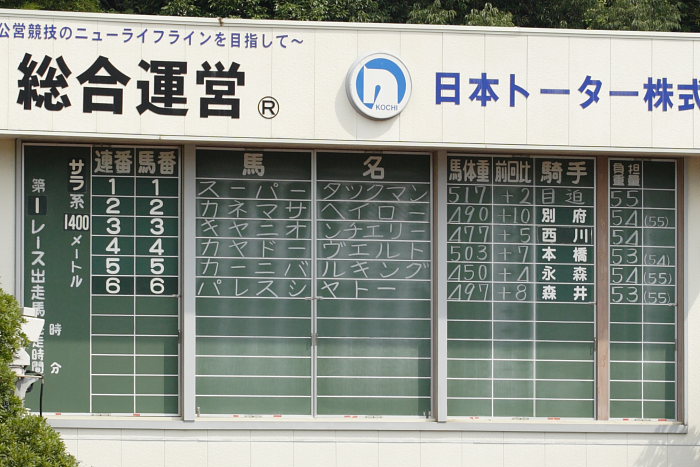 公営競技のニューライフラインを目指して～
総合運営®
KOCHI
日本トーター株式
サラ系 1400メートル
第1レース出走馬
時 分
連番 馬番 馬名 馬体重 前回比 騎手 負担重量
1 1 スーパータックマン 517 +2 目迫 55
2 2 カネマサヘイロー 490 +10 別府 54 (55)
3 3 キヤニオンチエリー 477 +5 西川 54
4 4 カヤドーヴエルト 503 +7 本橋 53 (54)
5 5 カーニバルキング 450 +4 永森 54 (55)
6 6 パレスシヤトー 497 +8 森井 53 (55)